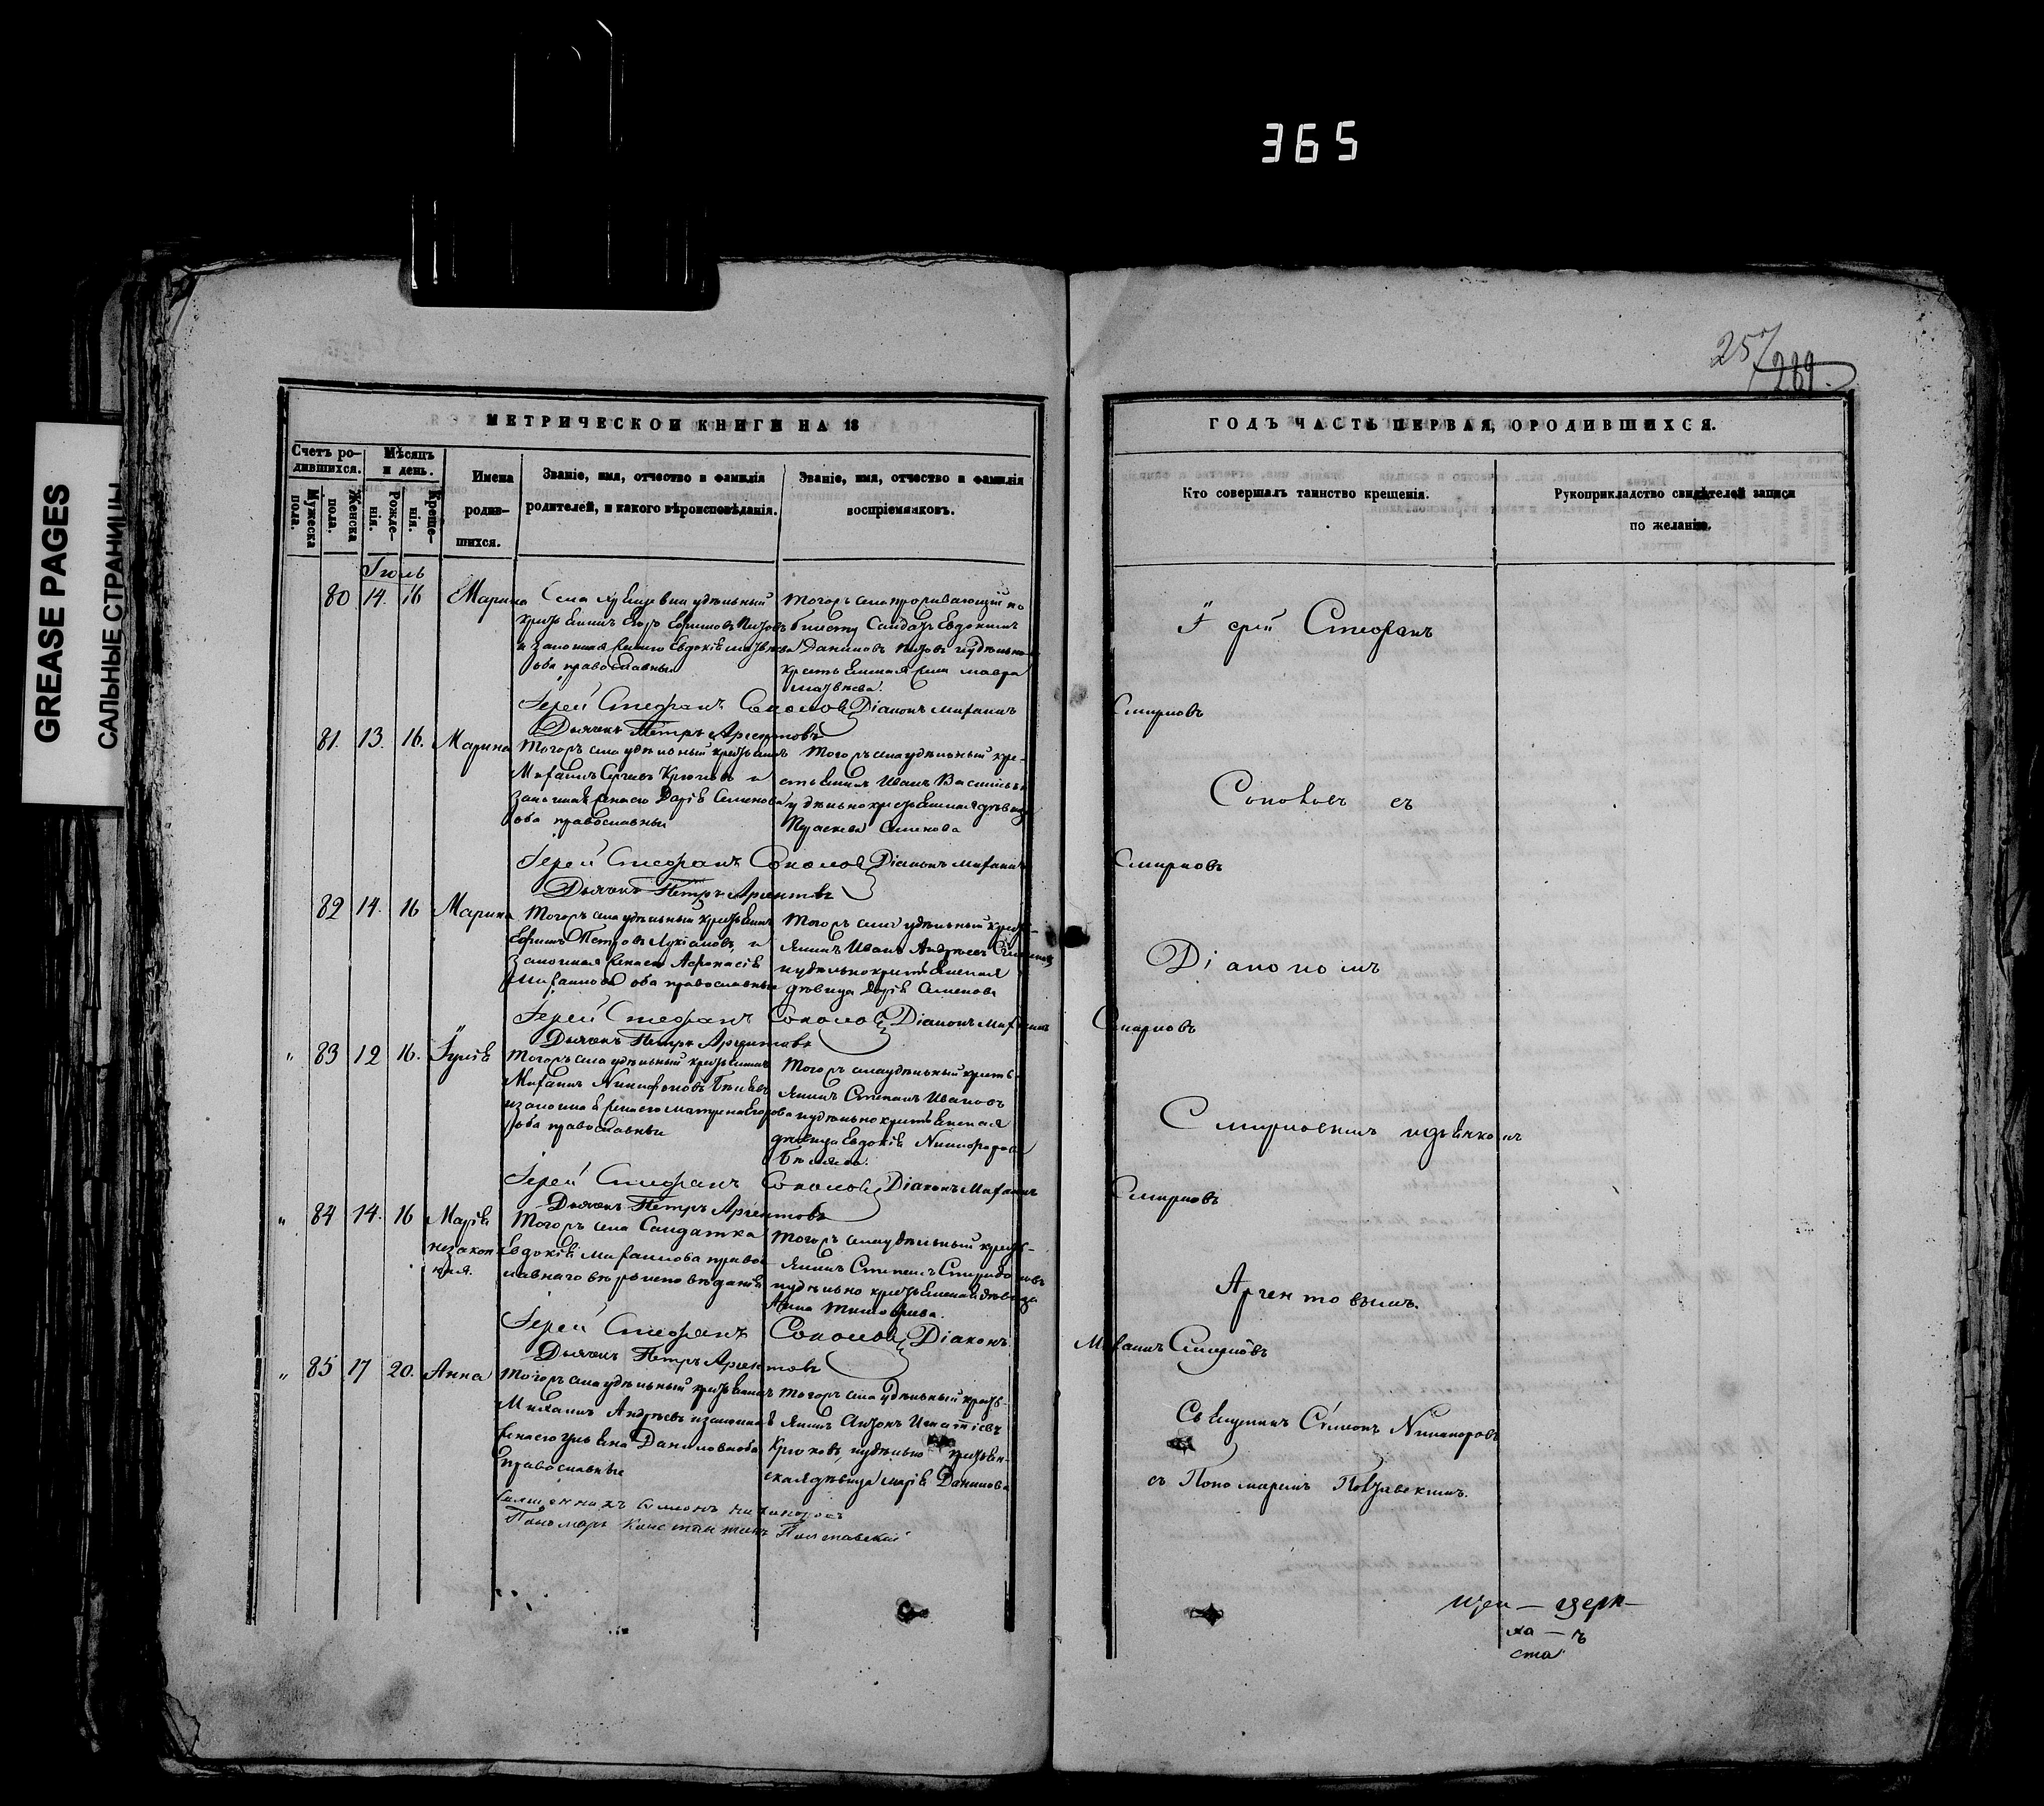 365
GREASE PAGES
САЛЬНЫЕ СТРАНИЦЫ
257
269.
МЕТРИЧЕСКОЙ КНИГИ НА 18
ГОДЪ ЧАСТЬ ПЕРВАЯ, О РОДИВШИХСЯ.
Счетъ ро-
дившихся.
Мѣсяцъ
и день.
Мужеска
пола.
Женска
пола.
Рожде-
нія.
Креще-
нія.
Имена
родив-
шихся.
Званіе, имя, отчество и фамилія
родителей, и какого вѣроисповѣданія.
Званіе, имя, отчество и фамилія
воспріемниковъ.
Кто совершалъ таинство крещенія.
Рукоприкладство свидѣтелей записи
по желанію.
Іюль
80 14. 16 Марина
удѣльный
Егоръ Ефимовъ
и законная жена его Евдокія
оба православныи
Того жъ села проживающій по
билету Салдатъ Евдокимъ
Даниловъ
крестьянская жена Мавра
Матвѣева.
Іерей Стефанъ Соколовъ Діаконъ Михаилъ
Смирновъ
Дьячекъ Петръ Аргентовъ
81. 13. 16. Марина
Того жъ села удѣльный крестьянинъ
Михаилъ Сергѣевъ Крюковъ и
законная жена его Дарія Семенова
оба православныи
Того жъ села удѣльный кре-
стьянинъ Иванъ Васильевъ
и удѣльно крестьянская дѣвица
Семенова
Іерей Стефанъ Соколовъ Діаконъ Михаилъ
Смирновъ
Дьячекъ Петръ Аргентовъ
82 14. 16 Марина
Того жъ села удѣльный крестьянинъ
Ефимъ Петровъ Лукіановъ, и
законная жена его Афанасія
Михаилова оба православныи
Того жъ села удѣльный кресть-
янинъ Иванъ Андреевъ
и удѣльно крестьянская
дѣвица Дарія Семенова
Іерей Стефанъ Соколовъ Діаконъ Михаилъ
Смирновъ
Дьячекъ Петръ Аргентовъ
" 83 12 16. Іулія
Того жъ села удѣльный крестьянинъ
Михаилъ Никифоровъ Бѣляевъ
и законная жена его Матрена Егорова
оба православныи
Того жъ села удѣльный кресть-
янинъ Степанъ Ивановъ
и удѣльно крестьянская
дѣвица Евдокія Никифорова
Бѣляева.
Іерей Стефанъ Соколовъ Діаконъ Михаилъ
Смирновъ
Дьячекъ Петръ Аргентовъ
" 84 14. 16 Марія
незакон
ная.
Того жъ села Салдатка
Евдокія Михаилова право-
славнаго вѣроисповѣданія
Того жъ села удѣльный кресть-
янинъ Степанъ Спиридоновъ
и удѣльно крестьянская дѣвица
Анна Тимофеева.
Іерей Стефанъ Соколовъ Діаконъ
Михаилъ Смирновъ
Дьячекъ Петръ Аргентовъ
" 85 17 20. Анна
Того жъ села удѣльный крестьянинъ
Михаилъ Андреевъ и законная
жена его Ульяна Данилова оба
православные
Того жъ села удѣльный кресть-
янинъ Антонъ Игнатіевъ
Крюковъ, и удѣльно крестьян-
ская дѣвица Марія Данилова
Священникъ Симеонъ Никаноровъ
Пономарь Константинъ Полтавскій
Іерей Стефанъ
Соколовъ съ
Діакономъ
Смирновымъ и дьячкомъ
Аргентовымъ.
Священникъ Симеонъ Никаноровъ
съ Пономаремъ Полтавскимъ.